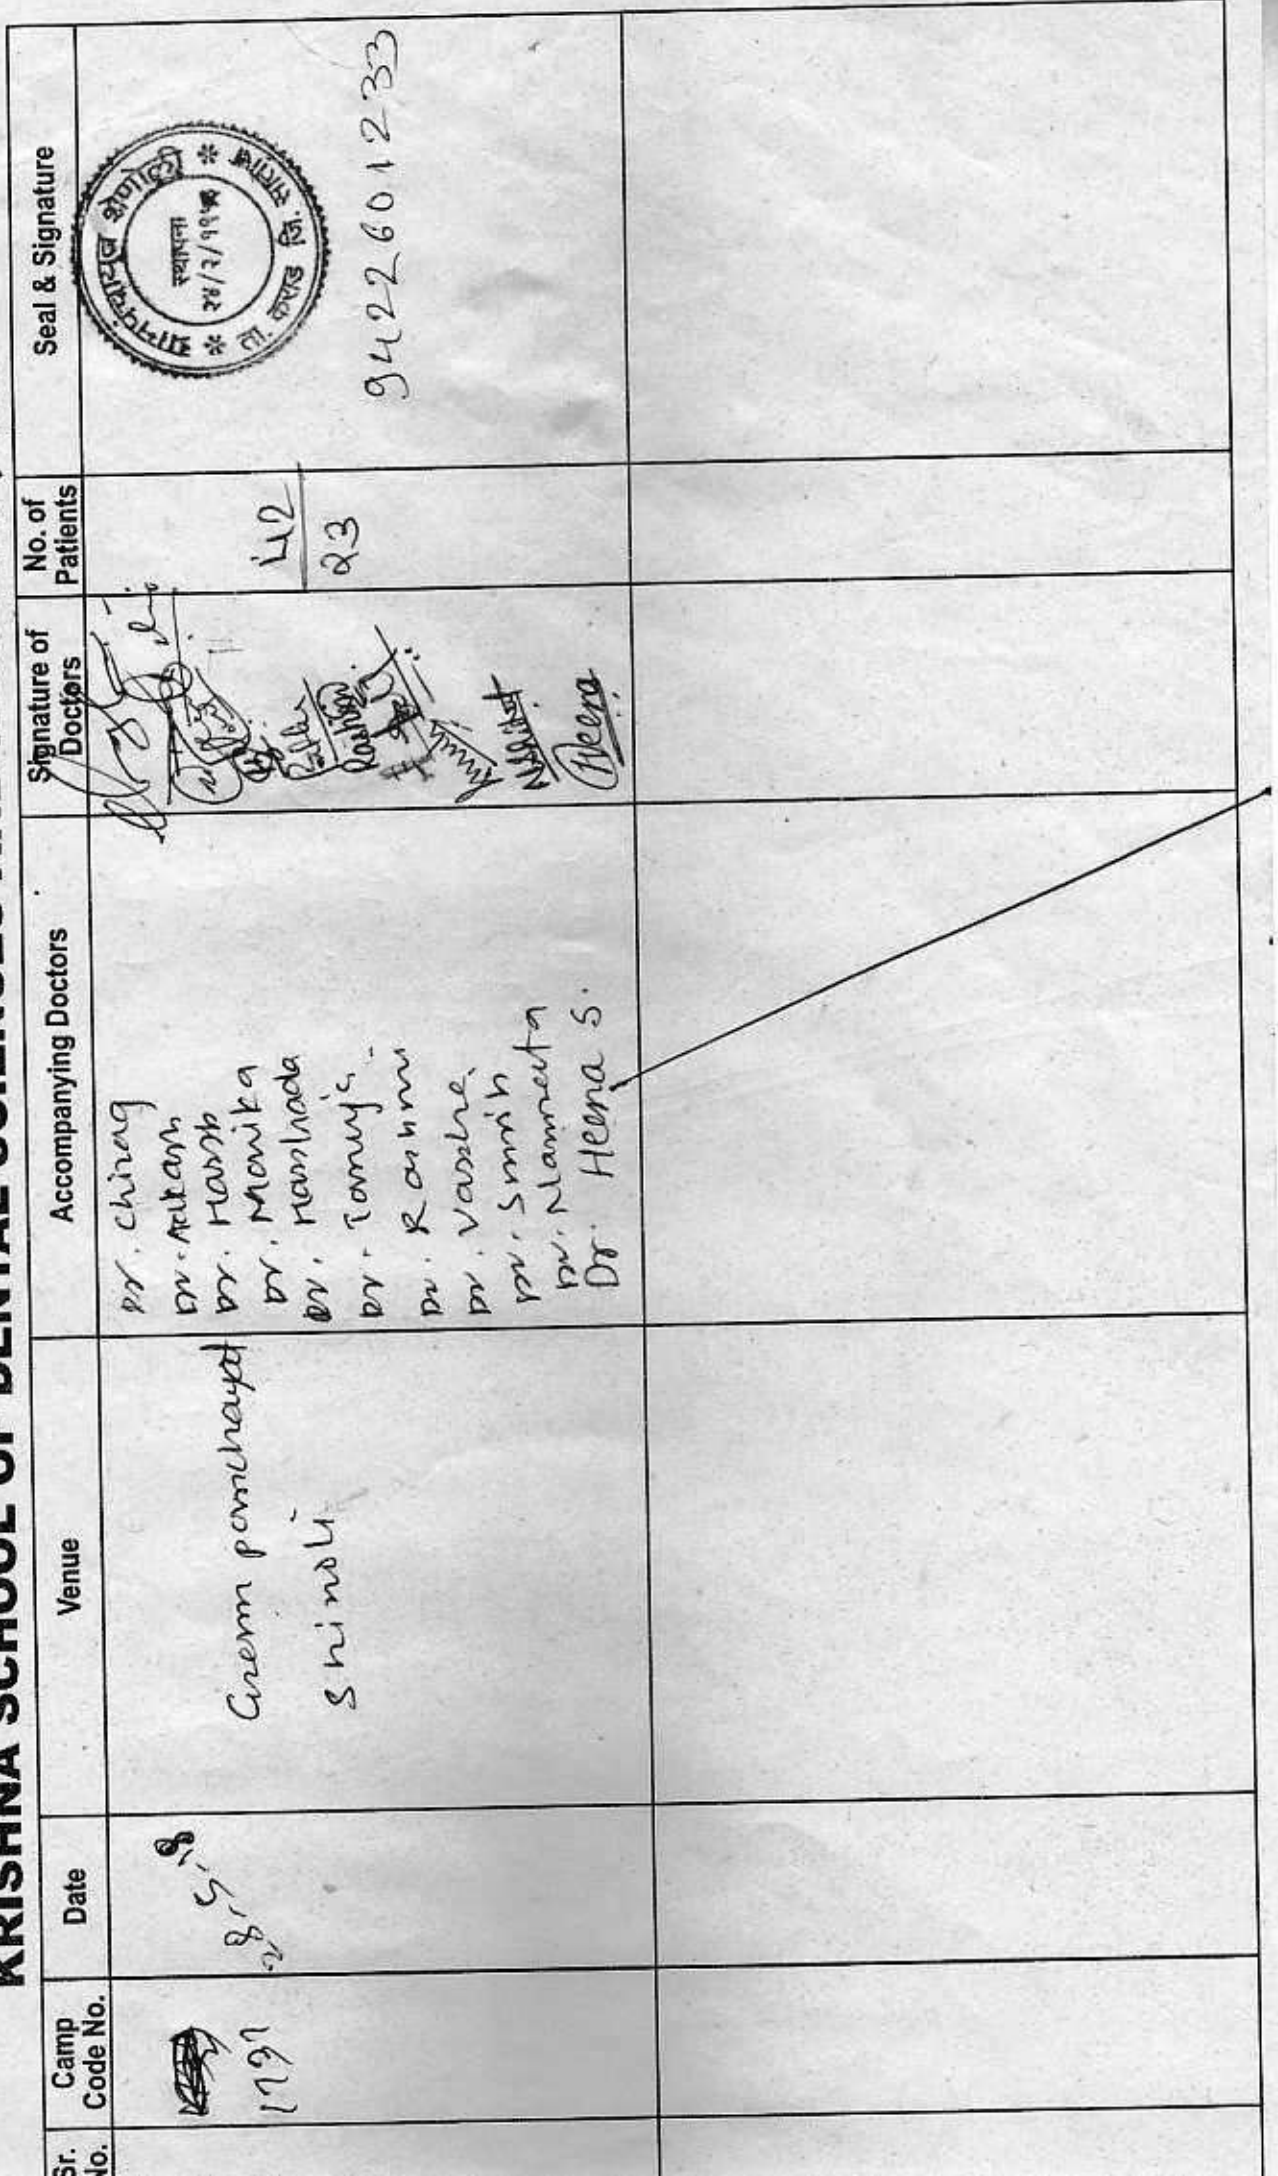 KRISHNA SCHOOL OF DENTAL SCIENCES
Sr. No.
Camp Code No.
Date
Venue
Accompanying Doctors
Signature of Doctors
No. of Patients
Seal & Signature
1731
28-5-18
Gram panchayat
Shinoli
Dr. Chirag
Dr. Aakash
Dr. Harsh
Dr. Monika
Dr. Harshada
Dr. Tanuja
Dr. Rashmi
Dr. Smith
Dr. Namrata
Dr. Heena S.
Rashmi
Heena
42
23
ग्रामपंचायत शेणोली
स्थापना
ता. कराड जि. सातारा
9422601233